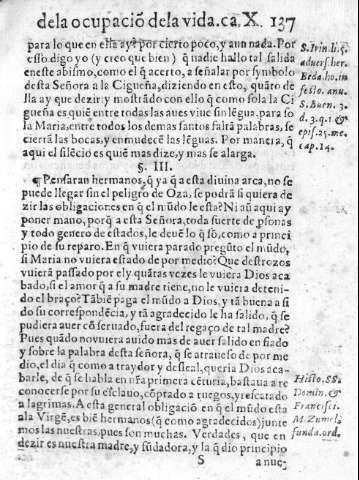 dela ocupaciõ dela vida.ca,X. 137
para lo que en esta ay? por cierto poco, y aun nada. Por
esso digo yo (y creo que bien) q̃ nadie hallo tal salida
eneste abismo, como el q̃ acerto, a señalar por symbolo
desta Señora a la Cigueña, diziendo en esto, quãto de
lla ay que dezir: y mostrãdo con ello q̃ como sola la Ci
gueña es quiẽ entre todas las aues viue sin lẽgua, para so
la Maria, entre todos los demas santos faltã palabras, se
cierrã las bocas, y enmudecẽ las lẽguas. Por manera, q̃
aqui el silẽcio es quiẽ mas dize, y mas se alarga.
S. Irin. li. 5.
aduers. her.
Beda. ho. in
festo. anu.
S. Buen. 3.
d. 3. q. 1 &
epis. 25. me.
cap. 14.
§. III.
¶ Pensaran hermanos, q̃ ya q̃ a esta diuina arca, no se
puede llegar sin el peligro de Oza, se podrâ si quiera de
zir las obligaciones en q̃ el mũdo le esta? Ni aũ aqui ay
poner mano, porq̃ a esta Señora, toda suerte de psonas
y todo genero de estados, le deuẽ lo q̃ sõ, como a princi
pio de su reparo. En q̃ vuiera parado pregũto el mũdo,
si Maria no vuiera estado de por medio? Que destrozos
vuierã passado por el y quãtas vezes le vuiera Dios aca
bado, si el amor q̃ a su madre tiene, no le vuiera deteni-
do el braço? Tãbiẽ paga el mũdo a Dios, y tã buena a si
do su correspondẽcia, y tã agradecido le ha salido, q̃ se
pudiera auer cõseruado, fuera del regaço de tal madre?
Pues quãdo no vuiera auido mas de auer salido en fiado
y sobre la palabra desta señora, q̃ se atraueso de por me
dio, el dia q̃ como a traydor y desleal, queria Dios acab-
barle, de q̃ se habla en nr̃a primera cẽturia, bastaua a re
conocerse por su esclauo, cõprado a ruegos, y rescatado
a lagrimas. A esta general obligaciõ en q̃ el mũdo esta
a la Virgẽ, es biẽ hermanos (q̃ como agradecidos) junte
mos las nuestras, pues son muchas. Verdades, que en
dezir es nuestra madre, y fũdadora, y la q̃ dio principio
Histo. SS.
Domin. &
Francisci.
M. Zumel.
funda. ord.
S a nue-